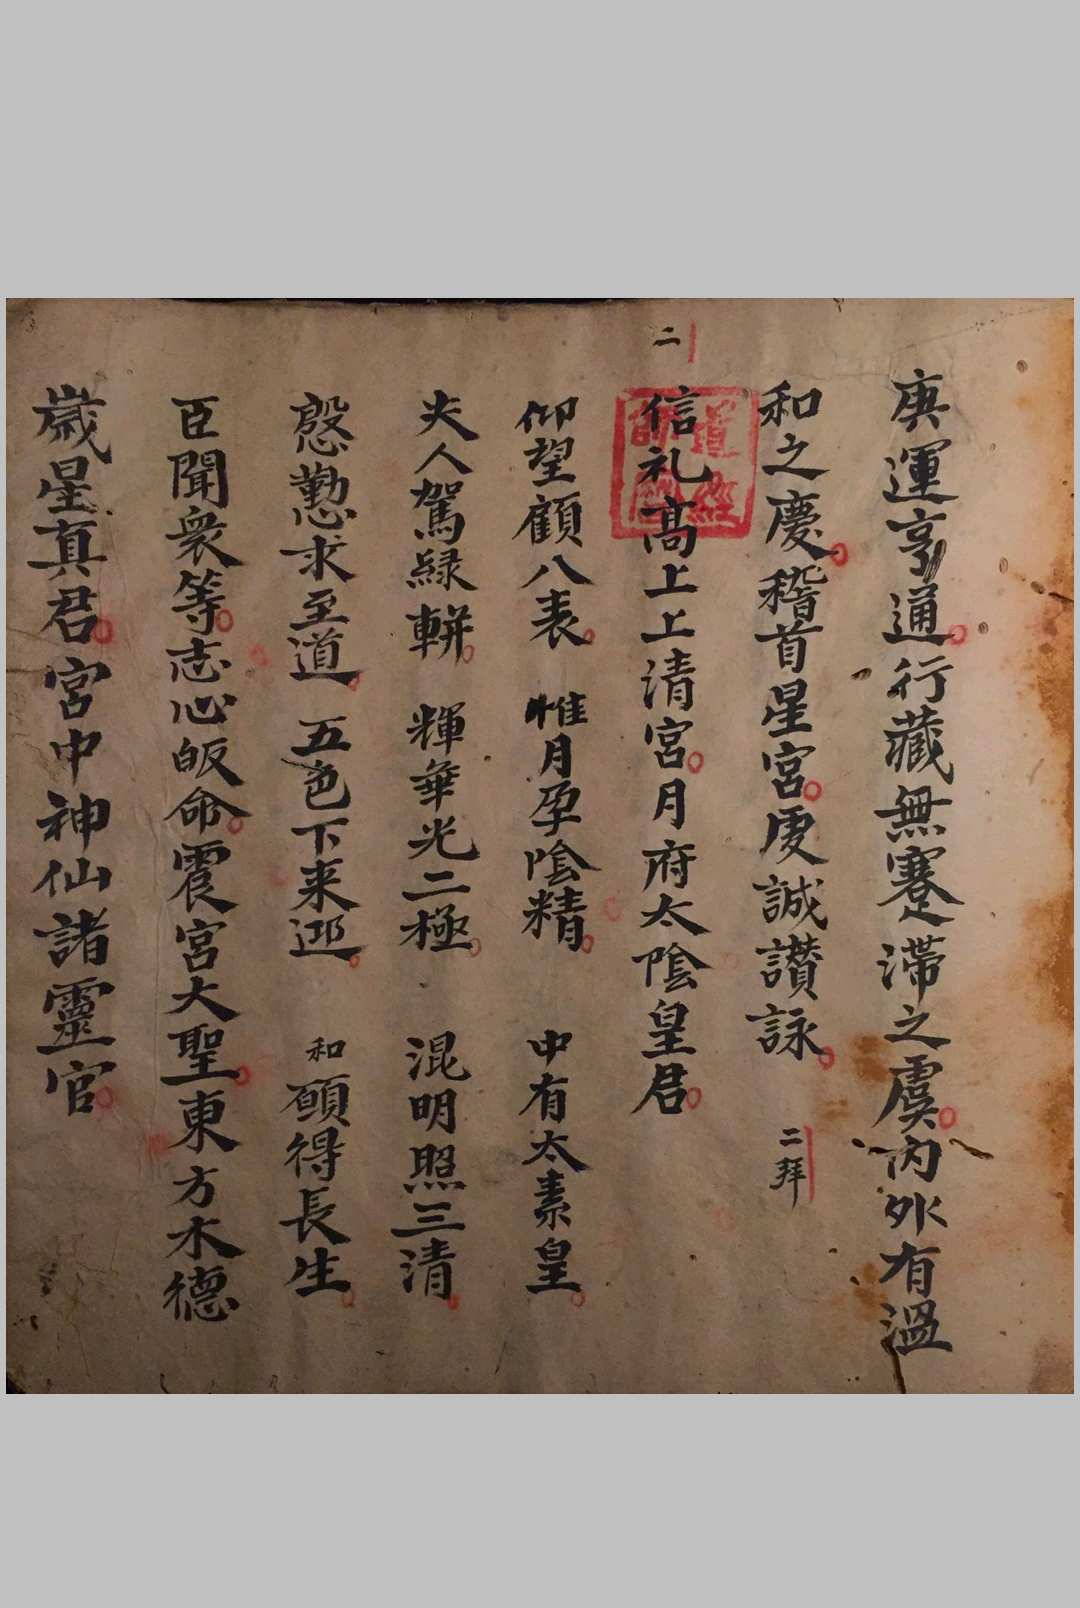 庚運亨通行藏無蹇滯之虞内外有溫
和之慶稽首星宮虔誠讚詠 二拜
二
信礼高上上清宮月府太陰皇君
仰望顧八表 惟月孕陰精 中有太素皇
夫人駕緑軿 輝華光二極 混明照三清
慇懃求至道 五色下来迎 和 願得長生
臣聞衆等志心皈命震宮大聖東方木德
歲星真君宮中神仙諸靈官
道經師寶